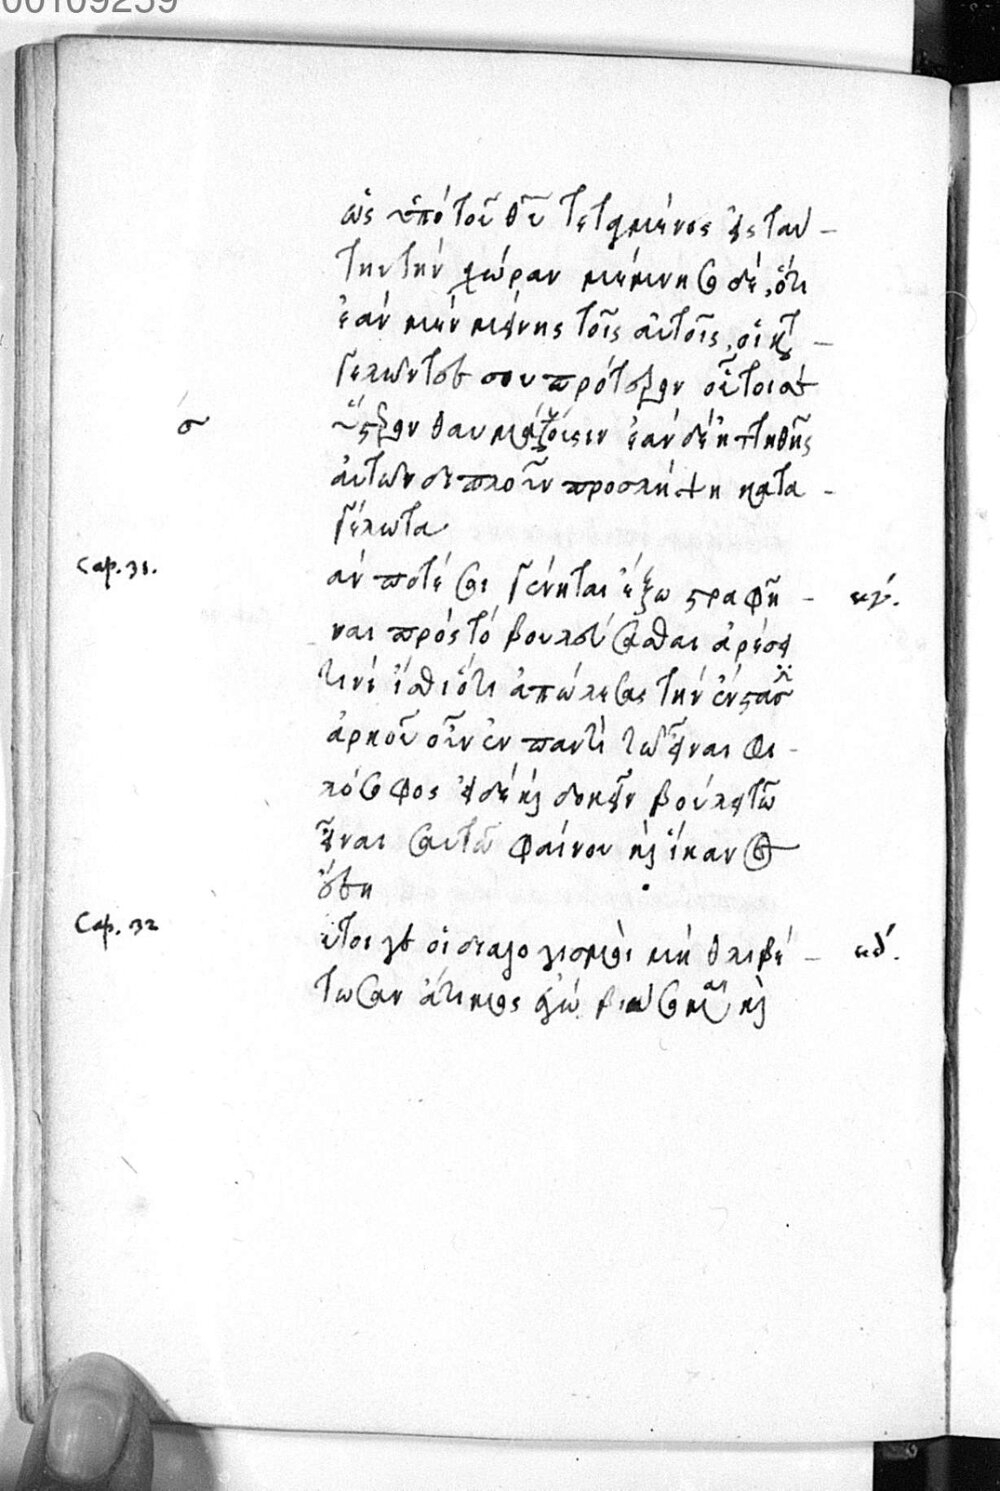 00109259
ὡς ὑπὸ τοῦ θυ τεταγμένος εἰς ταύ-
την τὴν χώραν μέμνησο δέ, ὅτι
ἐὰν μὲν μείνης τοῖς αὐτοῖς, οἱ κατ-
γελῶντες σου πρότερον οὗτοί σε
ὕστερον θαυμάσουσιν ἐὰν δὲ ἡττηθῆς
αὐτῶν διπλοῦν προσλήψη κατα-
γέλωτα
σ
Cap. 31.
ἄν ποτέ σοι γένηται ἔξω στραφῆ-
κγ´.
ναι πρὸς τὸ βούλεσθαι ἀρέσαι
τινὶ ἴσθι ὅτι ἀπώλεσας τὴν ἔνστασιν
ἀρκοῦ οὖν ἐν παντὶ τῷ εἶναι φι-
λόσοφος εἰ δὲ καὶ δοκεῖν βούλει τῷ
εἶναι σαυτῷ φαίνου καὶ ἱκανὸς
ἔση
Cap. 32
οὗτοί σε οἱ διαλογισμοὶ μὴ θλιβέ-
κδ´.
τωσαν ἄτιμος ἐγὼ βιώσομαι καὶ